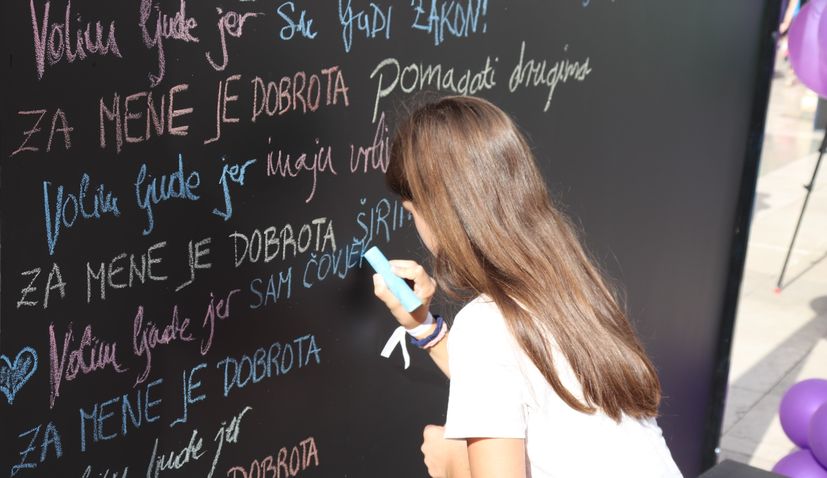 Volim ljude jer su ljudi ZAKON!
ZA MENE JE DOBROTA pomagati drugima
Volim ljude jer imaju
ZA MENE JE DOBROTA
Volim ljude jer SAM ČOVJEK
ZA MENE JE DOBROTA
ljude jer
DOBROTA